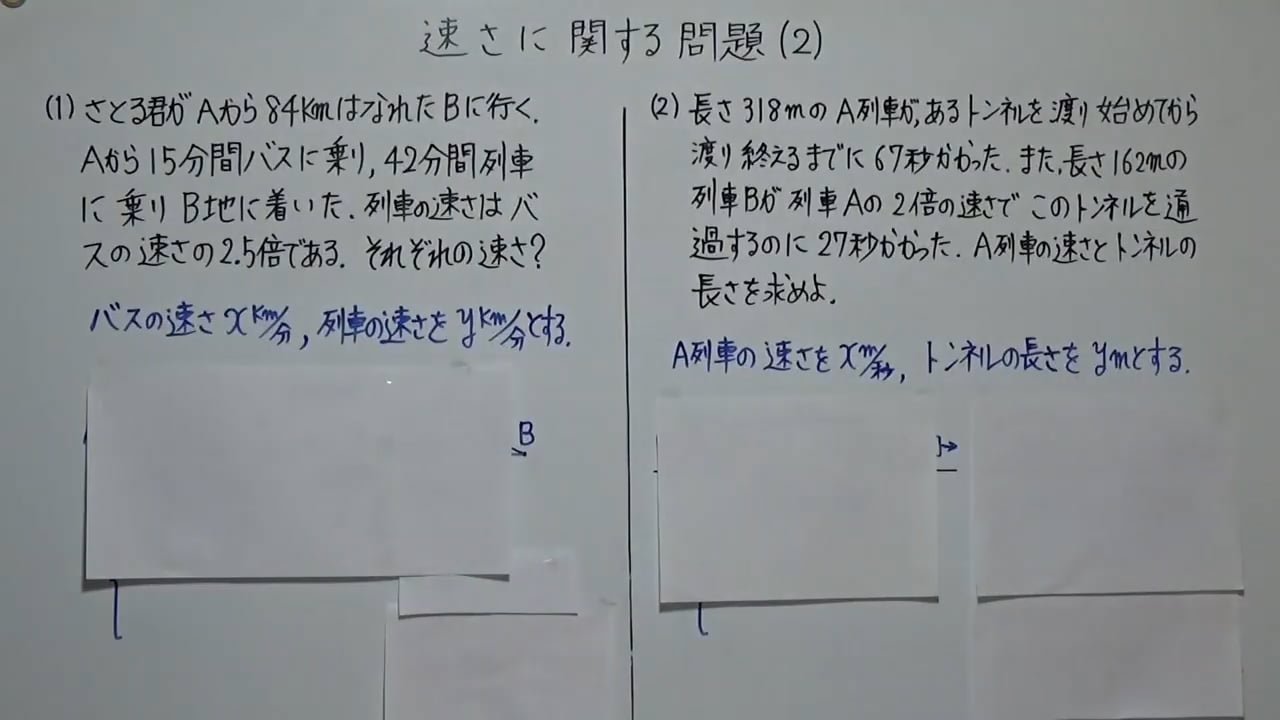 速さに関する問題(2)
(1) さとる君がAから84kmはなれたBに行く.
Aから15分間バスに乗り,42分間列車
に乗りB地に着いた.列車の速さはバ
スの速さの2.5倍である.それぞれの速さ?
バスの速さxkm/分,列車の速さをykm/分とする.
B
(2) 長さ318mのA列車が,あるトンネルを渡り始めてから
渡り終えるまでに67秒かかった.また,長さ162mの
列車Bが列車Aの2倍の速さでこのトンネルを通
過するのに27秒かかった.A列車の速さとトンネルの
長さを求めよ.
A列車の速さをxm/秒,トンネルの長さをymとする.